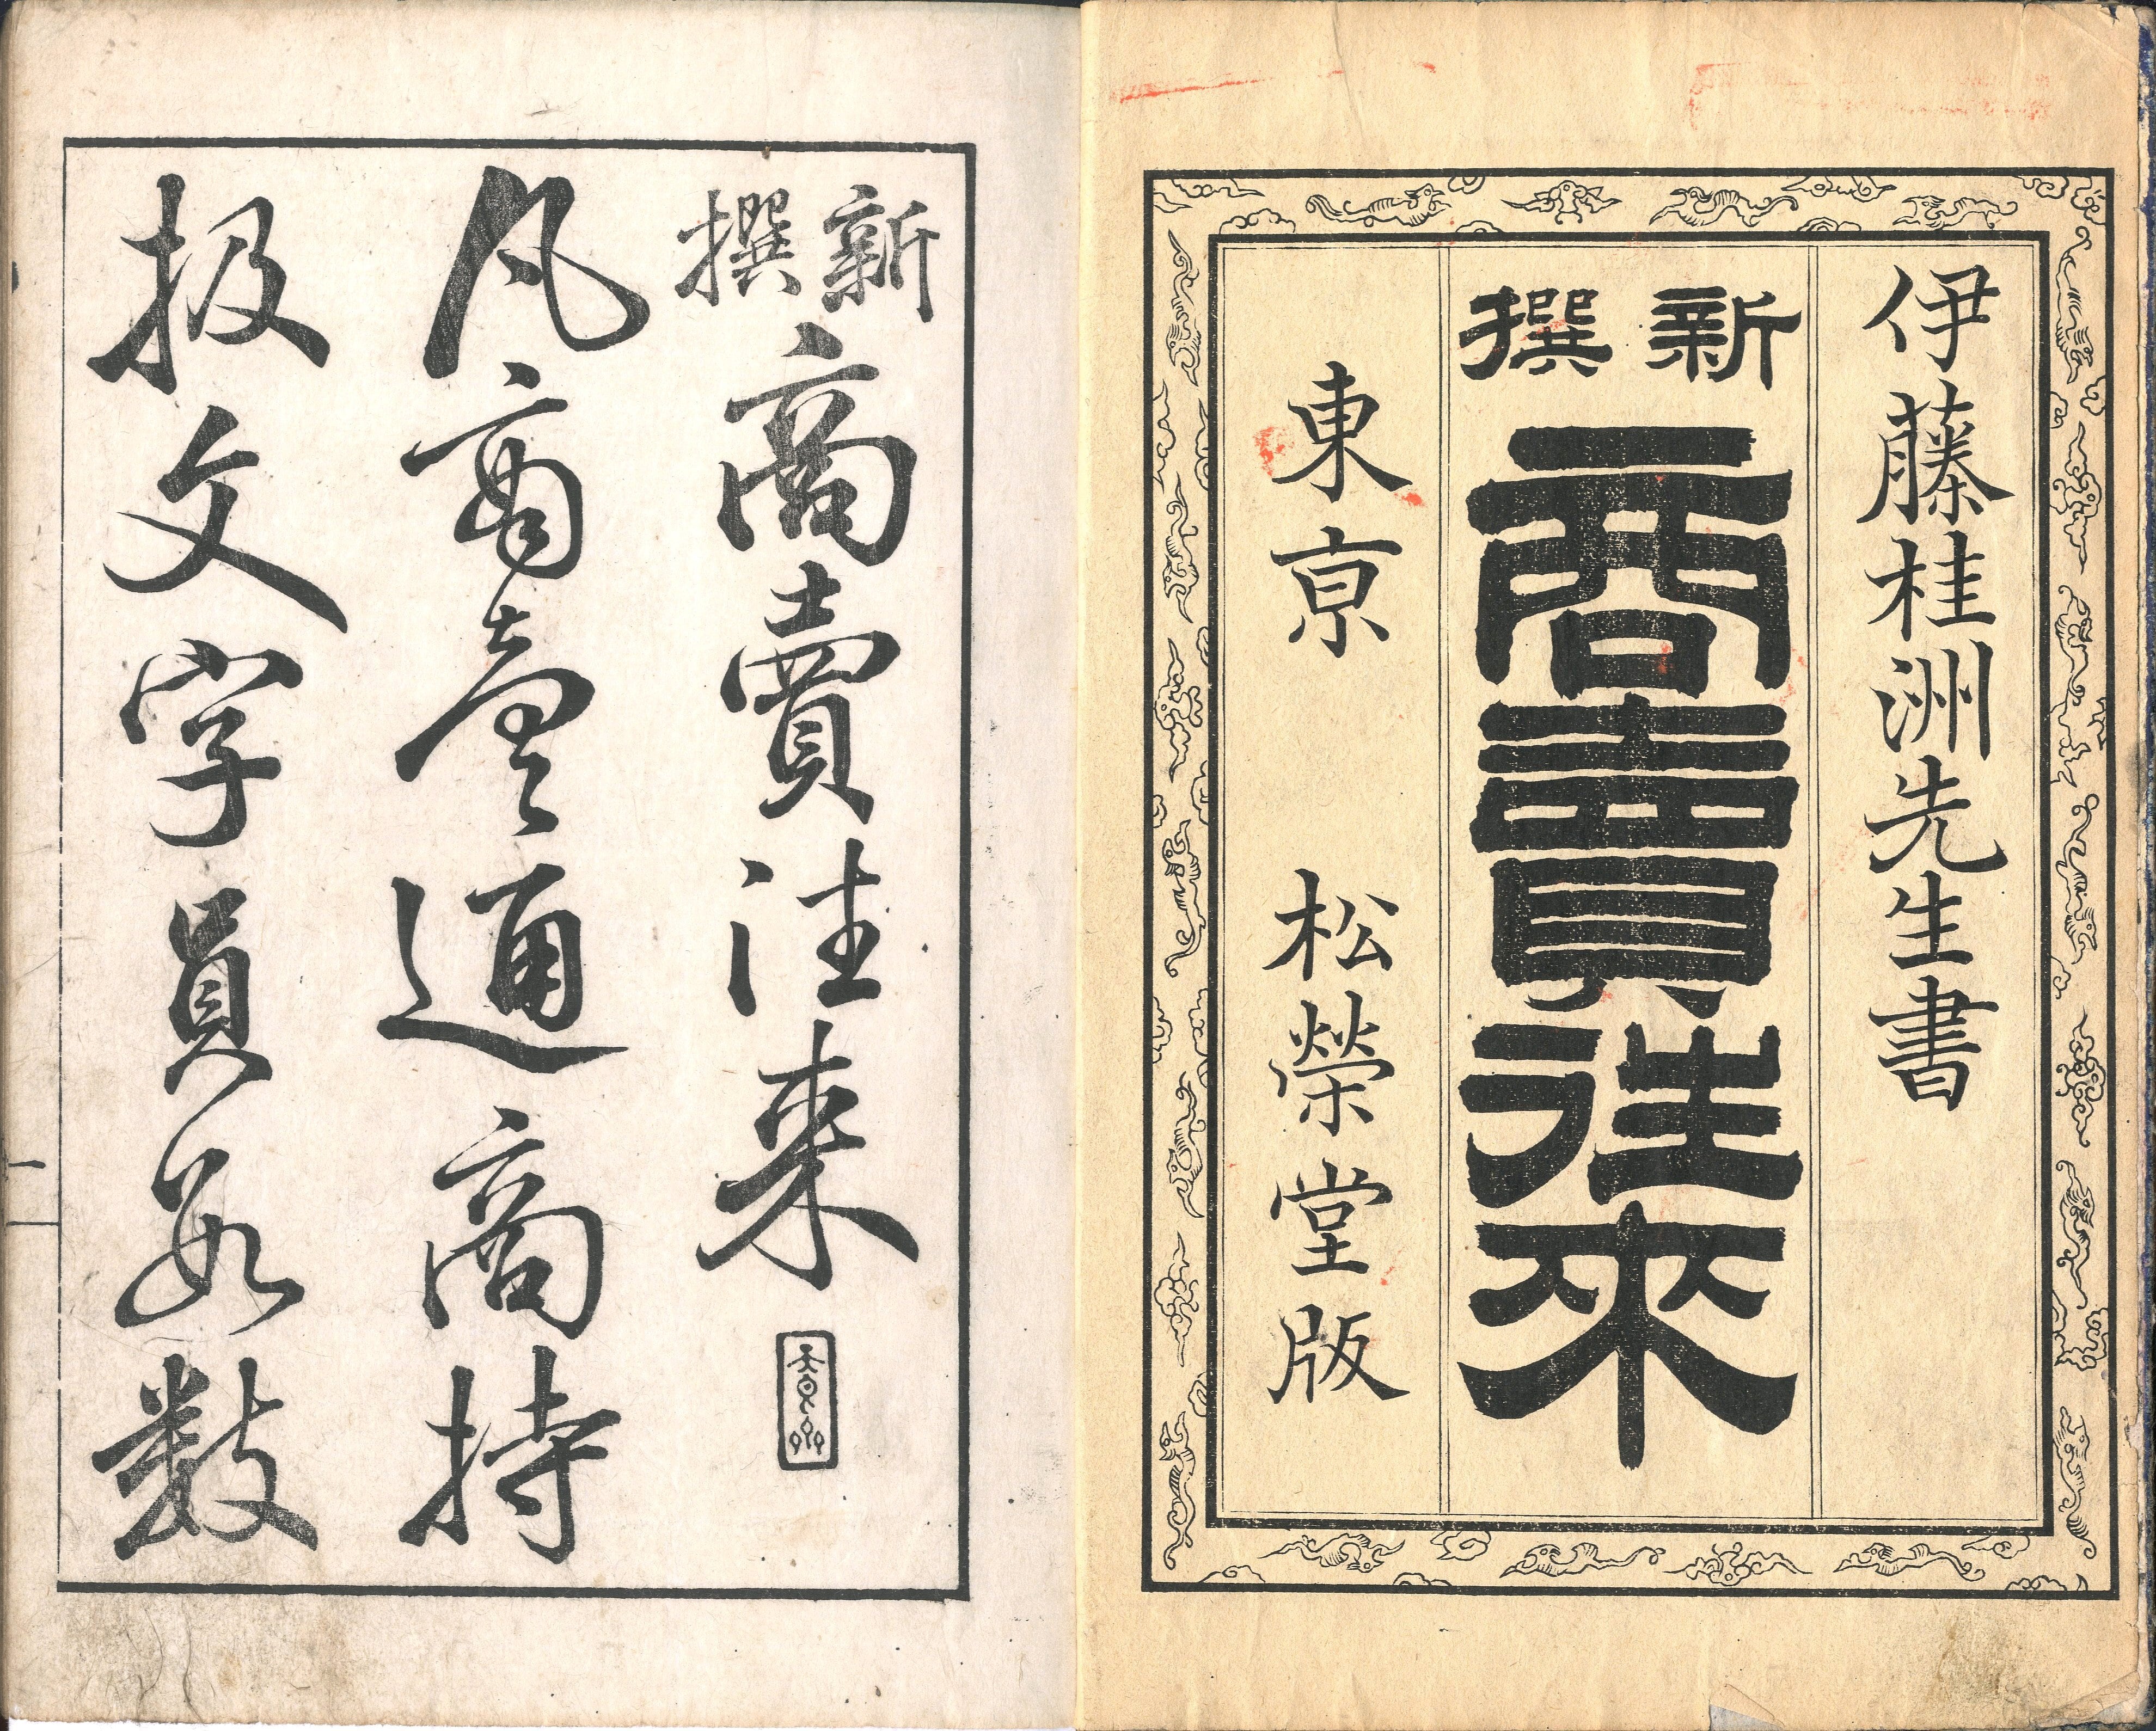 伊藤桂洲先生書
新撰
商賣往來
東亰 松榮堂版
新撰 商賣往来
凡商賣通商持
扱文字員数